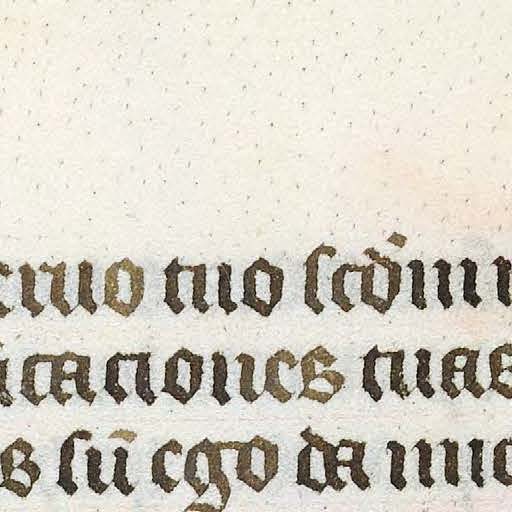 eruo tuo scd̄m m
icationes tuas
s sū ego da mic